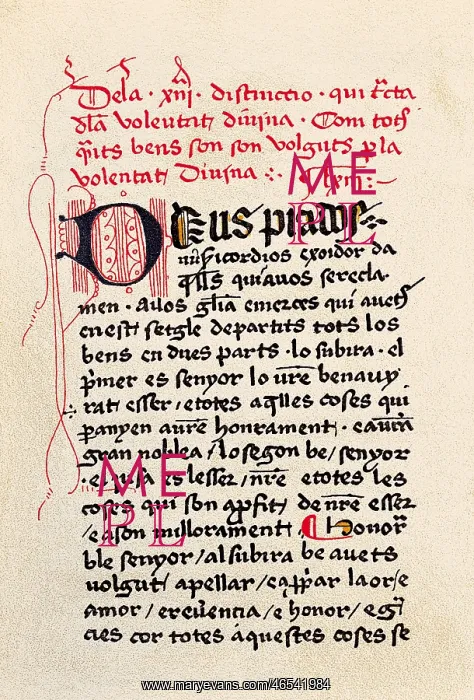 Dela · xiij · distinctio · qui tᷓcta
dla voleutat diuina · Com tots
q̃its bens son son volguts p la
volentat Diuina
Deus piados
misericordios exoidor da
q̃lls qui auos serecla-
men · Auos glīa emerces qui auets
en est setgle departits tots los
bens en dues parts · lo subira · el
p̱mer es senyor lo ur̄e benauy
rat esser / e totes aq̃lles coses qui
panyen a ur̄e honrament ·
gran noblea / lo segon be / senyor
es lesser / nr̄e e totes les
coses qui son a profit de nr̄e esser
/ e a son millorament · Honor̄
ble senyor / al subira be auets
uolgut apellar / la or / e
amor / e reuerencia / e honor / e g̃
cies cor totes aquestes coses se
ME
PL
ME
PL
www.maryevans.com/46541984